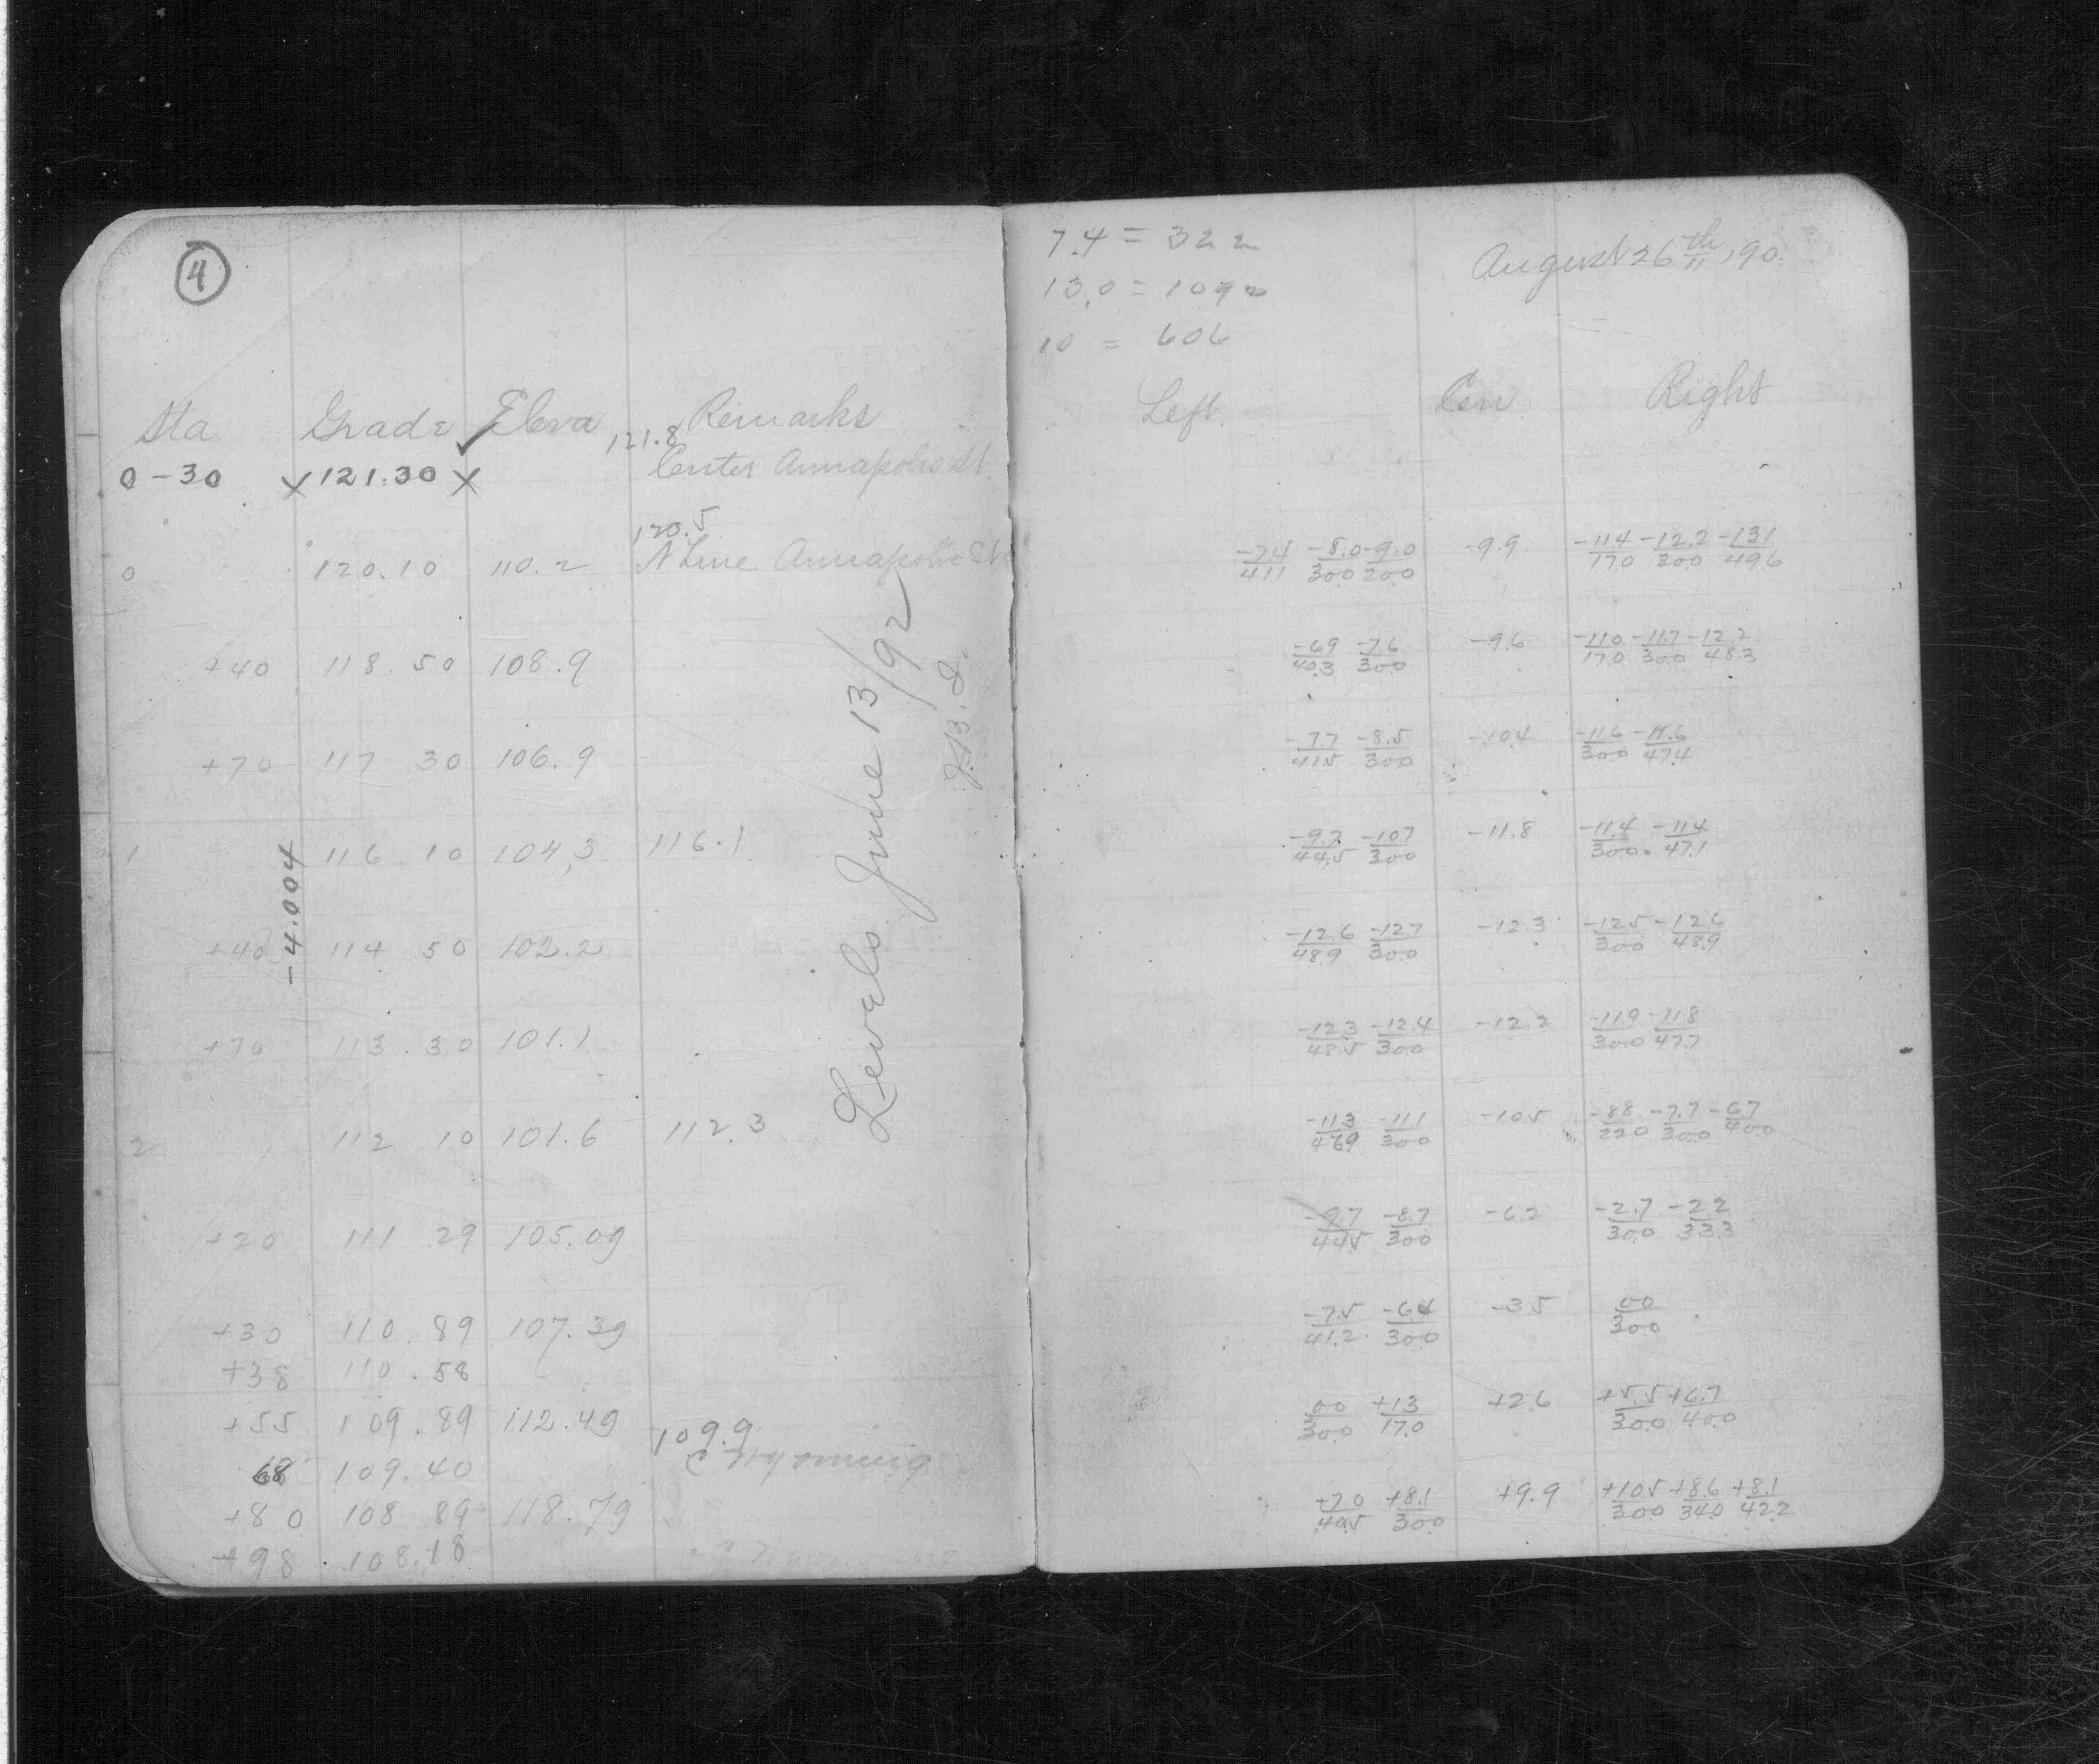 4
Sta Grade Eleva Remarks
121.8
0-30 x 121.30 x Center Annapolis St
120.5
0 120.10 110.2 N Line Annapolis St
+40 118.50 108.9
+70 117 30 106.9
1 116.10 104.3 116.1
-4.004
+40 114 50 102.2
+70 113.30 101.1
2 112 10 101.6 112.3
+20 111 29 105.09
+30 110.89 107.39
+38 110.58
+55 109.89 112.49 109.9
68 109.40 C Wyoming
+80 108 89 118.79
+98 108.18
Levels June 13/92
7.4 = 322
August 26th, 90.
13.0 = 1092
10 = 606
Left Cen Right
-7.4/41.1 -8.0/300 -9.0/200 -9.9 -11.4/17.0 -12.2/300 -13.1/49.6
-6.9/40.3 -7.6/300 -9.6 -11.0/17.0 -11.7/300 -12.2/48.3
-7.7/41.5 -8.5/300 -10.4 -11.6/300 -11.6/47.4
-9.7/44.5 -10.7/300 -11.8 -11.4/300 -11.4/47.1
-12.6/48.9 -12.7/300 -12.3 -12.5/300 -12.6/48.9
-12.3/48.5 -12.4/300 -12.2 -11.9/300 -11.8/47.7
-11.3/46.9 -11.1/300 -10.5 -8.8/22.0 -7.7/30.0 -6.7/40.0
-9.7/44.5 -8.7/300 -6.2 -2.7/30.0 -2.2/33.3
-7.5/41.2 -6.4/300 -3.5 00/300
00/300 +1.3/17.0 +2.6 +5.5/30.0 +6.7/40.0
+7.0/40.5 +8.1/300 +9.9 +10.5/300 +8.6/34.0 +8.1/42.2